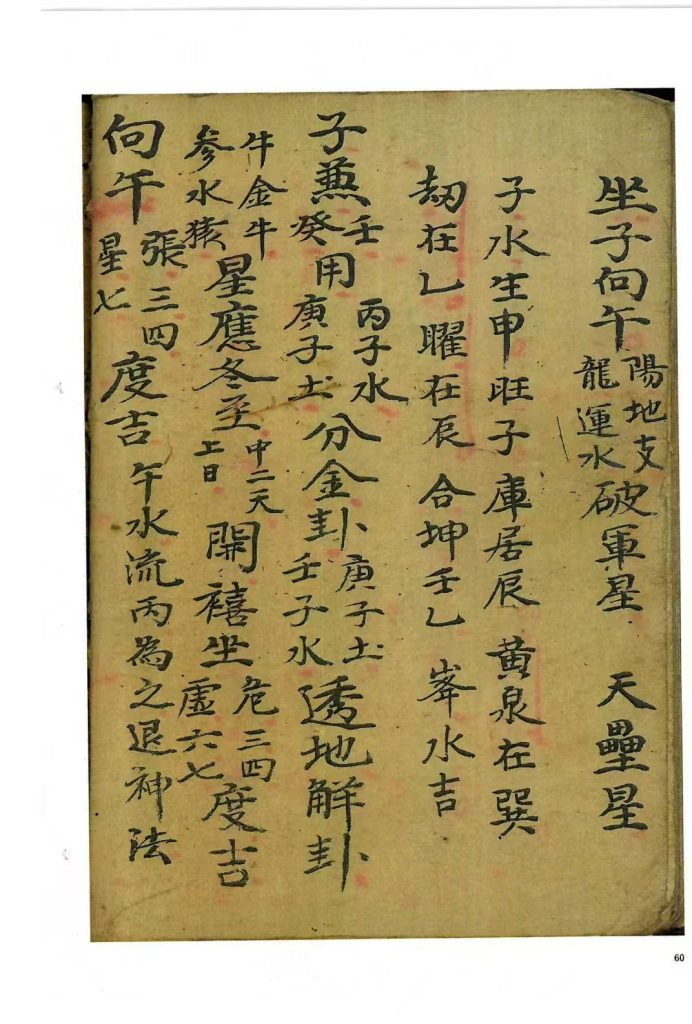 坐子向午陽地支龍運水破軍星 天壘星
子水生申旺子庫居辰 黄泉在巽
劫在乙曜在辰 合坤壬乙 峯水吉
子兼壬癸用丙子水庚子土分金卦庚子土壬子水透地解卦
牛金牛参水猿星應冬至中二天上日開禧坐危三四虛六七度吉
向午張三四星七度吉 午水流丙為之退神法
60